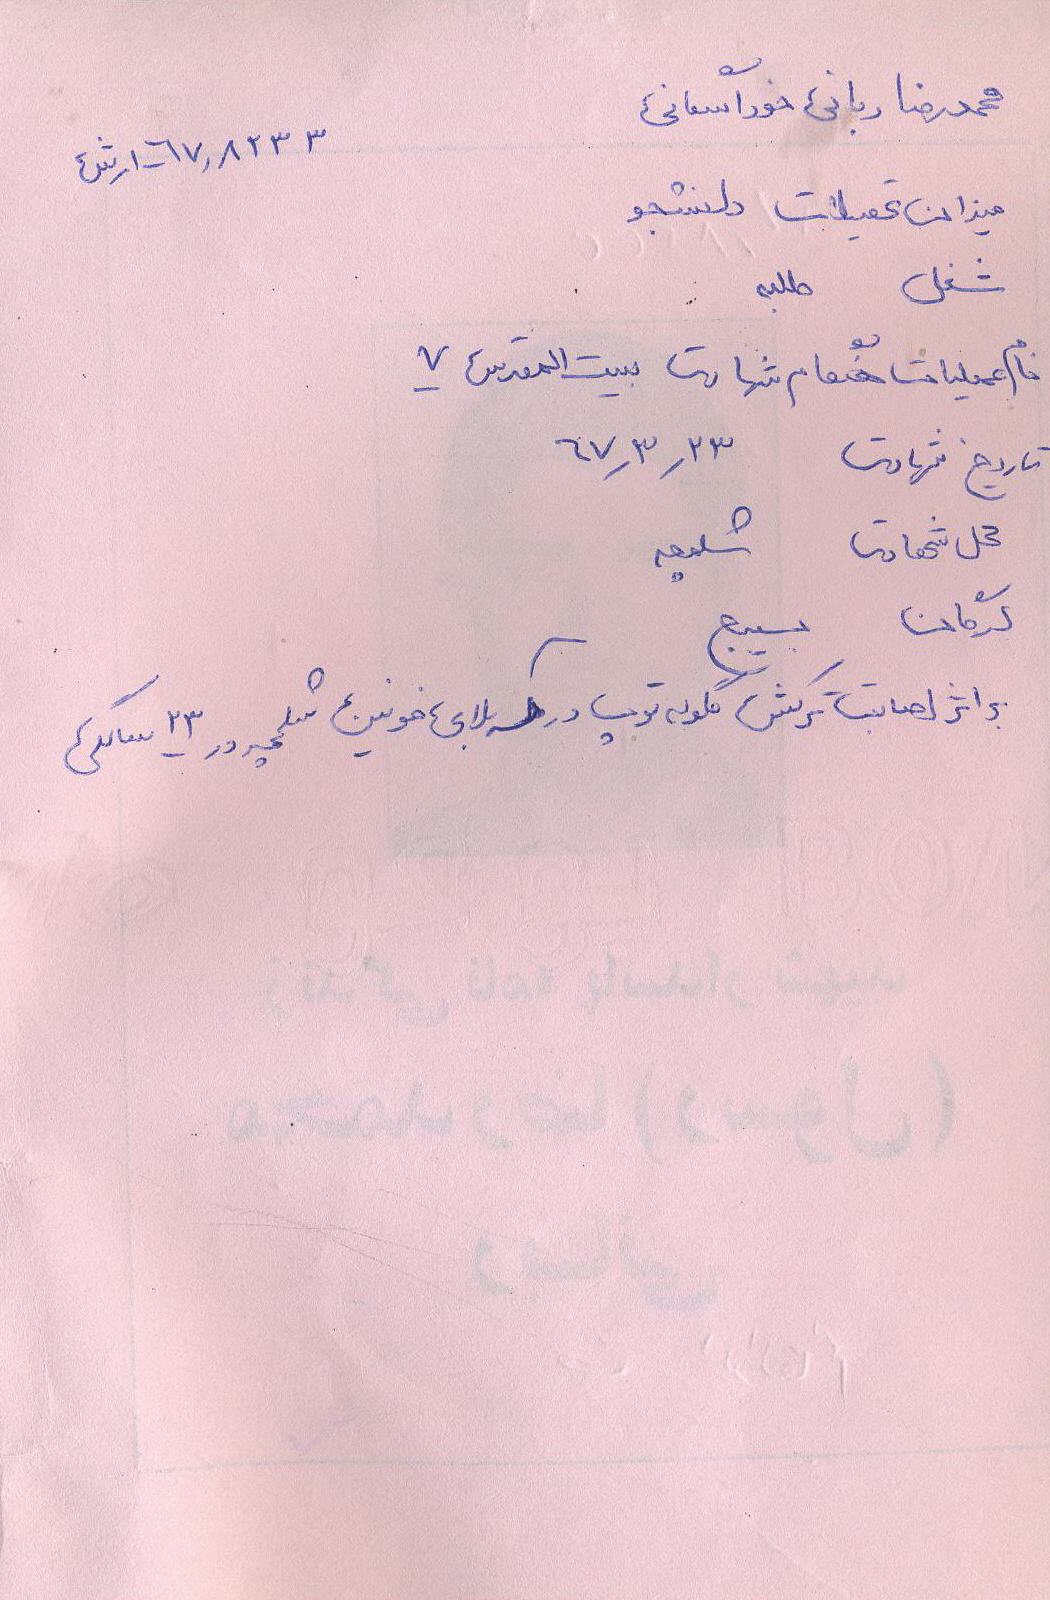 محمدرضا ربانی خوراسکانی
۶۷٫۸۲۳۳-ارتش
میزان تحصیلات دانشجو
شغل طلبه
نام عملیات هنگام شهادت بیت المقدس ۷
تاریخ شهادت ۶۷٫۳٫۲۳
محل شهادت شلمچه
ارگان بسیج
بر اثر اصابت ترکش گلوله توپ در کربلای خونین شلمچه در ۲۳ سالگی
زندگی نامه پاسدار شهید
محمدرضا (رسول)